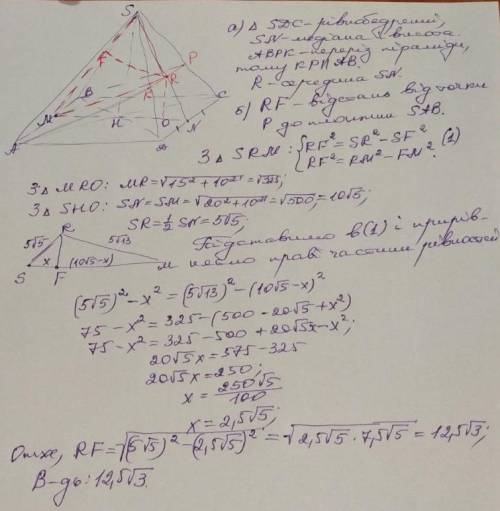 S
F
P
B
K
R
C
M
H
O
N
A
D
а) △ SDC - рівнобедрений,
SN - медіана і висота.
ABPK - переріз піраміди,
тому KP∥AB.
R - середина SN.
б) RF - відстань від точки
P до площини SAB.
З △ SRM: { RF² = SR² - SF²
RF² = RM² - FM². (1)
З △ MRO: MR = √15² + 10² = √325;
З △ SHO: SN = SM = √20² + 10² = √500 = 10√5;
SR = 1/2 SN = 5√5;
R
5√5
5√13
x
(10√5-x)
S
F
M
Підставимо в (1) і прирів-
няємо праві частини рівностей
(5√5)² - x² = (5√13)² - (10√5-x)²
75 - x² = 325 - (500 - 20√5 + x²)
75 - x² = 325 - 500 + 20√5x - x²;
20√5x = 575 - 325
20√5x = 250;
x = 250√5/100
x = 2,5√5;
Отже, RF = √(5√5)² - (2,5√5)² = √2,5√5 · 7,5√5 = 12,5√3;
В-дь: 12,5√3.